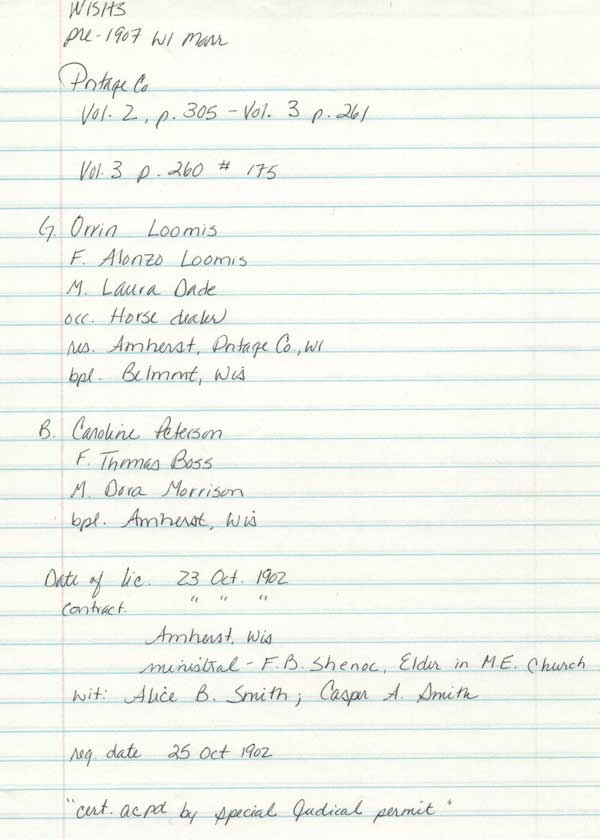 WISHS
pre-1907 WI Marr
Portage Co
Vol. 2, p. 305 - Vol. 3 p. 261
Vol. 3 p. 260 # 175
G. Orrin Loomis
F. Alonzo Loomis
M. Laura Dade
occ. Horse dealer
res. Amherst, Portage Co., WI
bpl. Belmont, Wis
B. Caroline Peterson
F. Thomas Boss
M. Dora Morrison
bpl. Amherst, Wis
Date of lic. 23 Oct. 1902
contract. " " "
Amherst, Wis
ministral - F.B. Shenoc, Elder in M.E. Church
wit: Alice B. Smith; Casper A. Smith
reg. date 25 Oct 1902
"cert. acpd by special Judical permit"